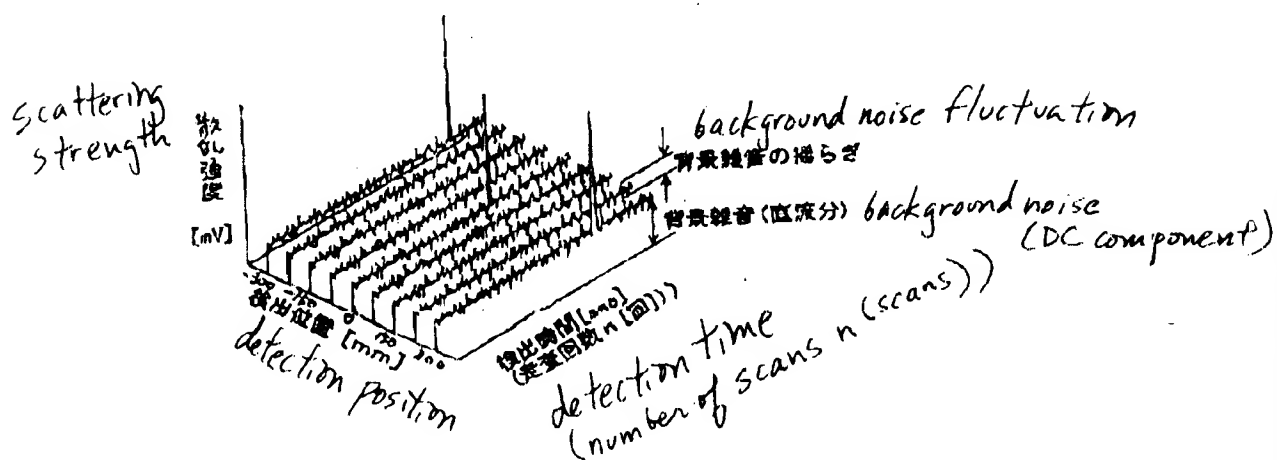 scattering
strength
散乱強度
[mV]
background noise fluctuation
背景雑音の揺らぎ
背景雑音(直流分)
background noise
(DC component)
検出位置 [mm]
detection position
検出時間
(走査回数 n [回])
detection time
(number of scans n (scans))